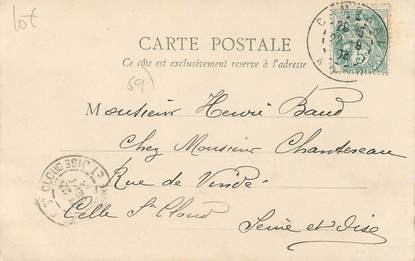 Lot
CARTE POSTALE
Ce côté est exclusivement réservé à l'adresse
59)
Monsieur Henri Baud
Chez Monsieur Chantereau
Rue de Vindé
Celle St Cloud
Seine et Oise